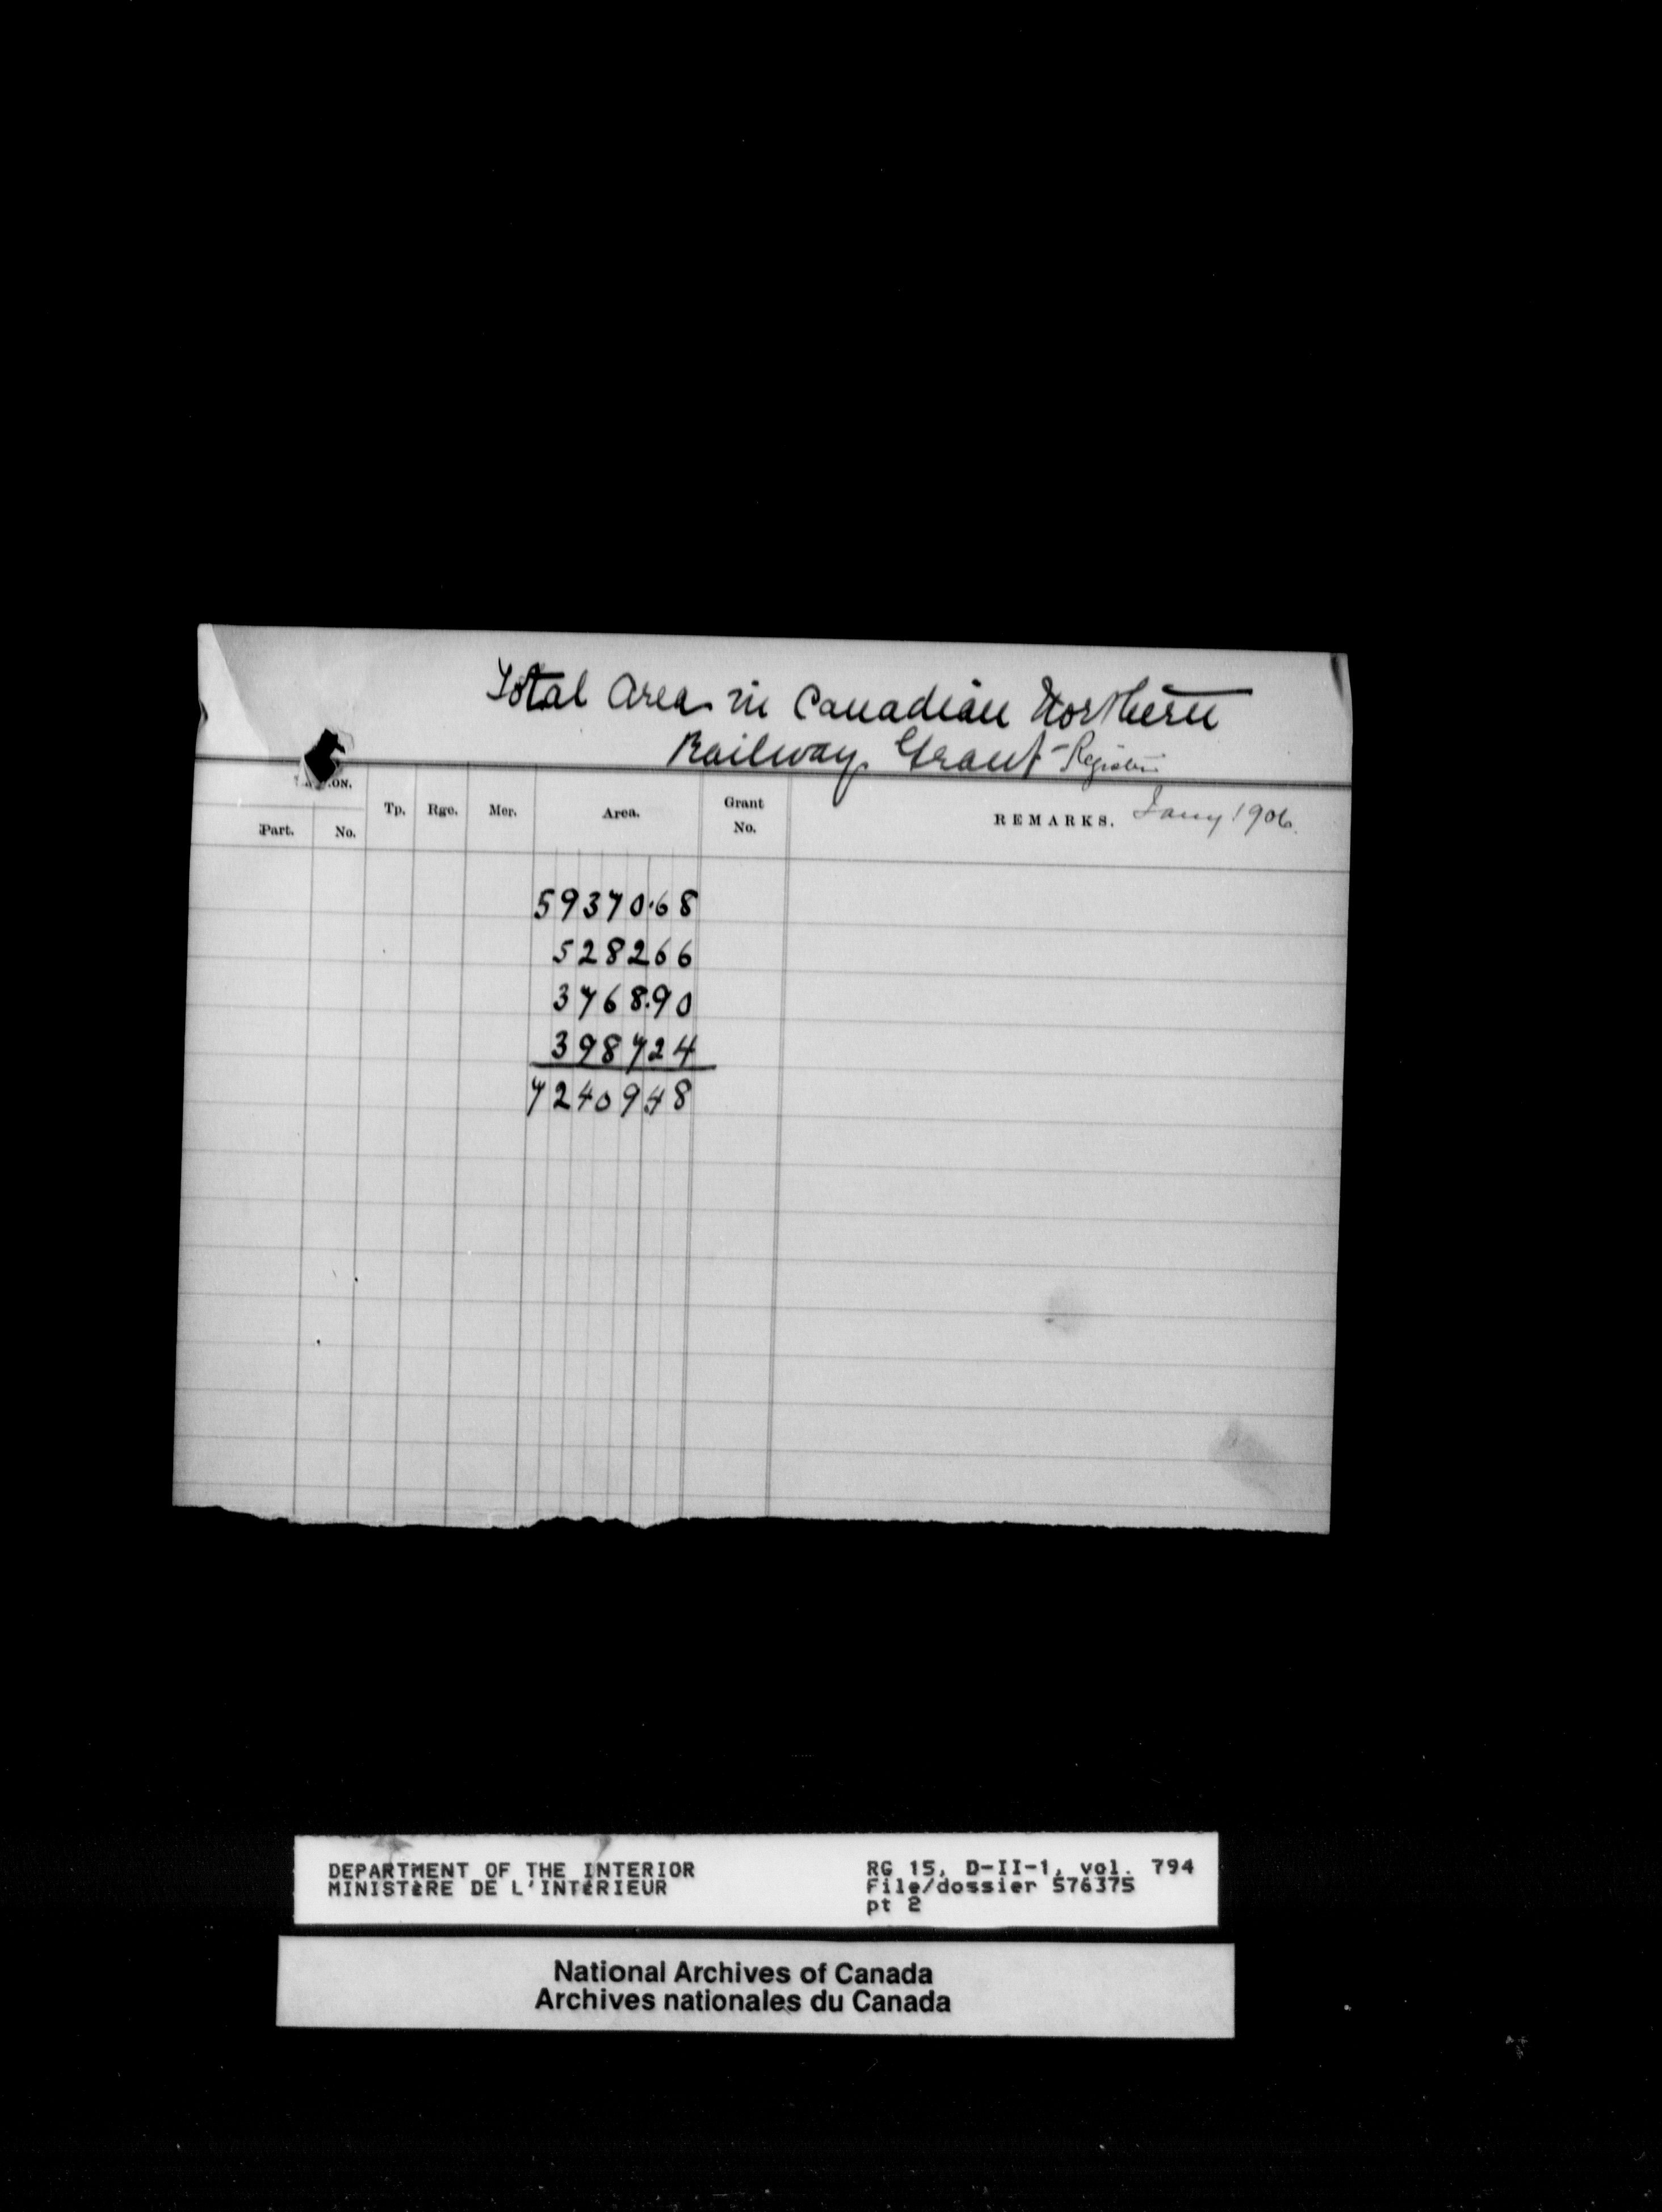 Total Area in Canadian Northern
Railway Grant - Register
Jany 1906.
Part. No. Tp. Rge. Mer. Area. Grant No. REMARKS.
59370.68
528266
3768.90
398724
7240948
DEPARTMENT OF THE INTERIOR
MINISTèRE DE L'INTéRIEUR
RG 15, D-II-1, vol. 794
File/dossier 576375
pt 2
National Archives of Canada
Archives nationales du Canada